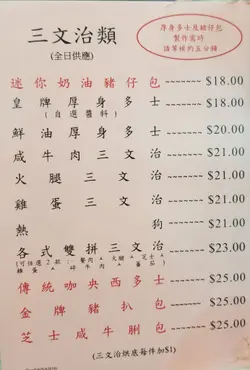 三文治類
(全日供應)
厚身多士及豬仔包
製作需時
請等候約五分鐘
迷你奶油豬仔包 ------- $18.00
皇牌厚身多士 ------- $18.00
(自選醬料)
鮮油厚身多士 ------- $20.00
咸牛肉三文治 ------- $21.00
火腿三文治 ------- $21.00
雞蛋三文治 ------- $21.00
熱狗 ------- $21.00
各式雙拼三文治 ------- $23.00
(可任選2款:餐肉▲火腿▲芝士▲
雞蛋▲碎牛肉▲蕃茄)
傳統咖央西多士 ------- $25.00
金牌豬扒包 ------- $25.00
芝士咸牛脷包 ------- $25.00
(三文治烘底每件加$1)